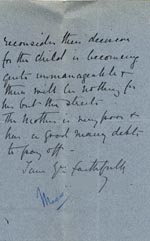 reconsider their decision
for the child is becoming
quite unmanageable &
there will be nothing for
him but the streets.
The mother is very poor &
has a good many debts
to pay off –
I am Yrs faithfully